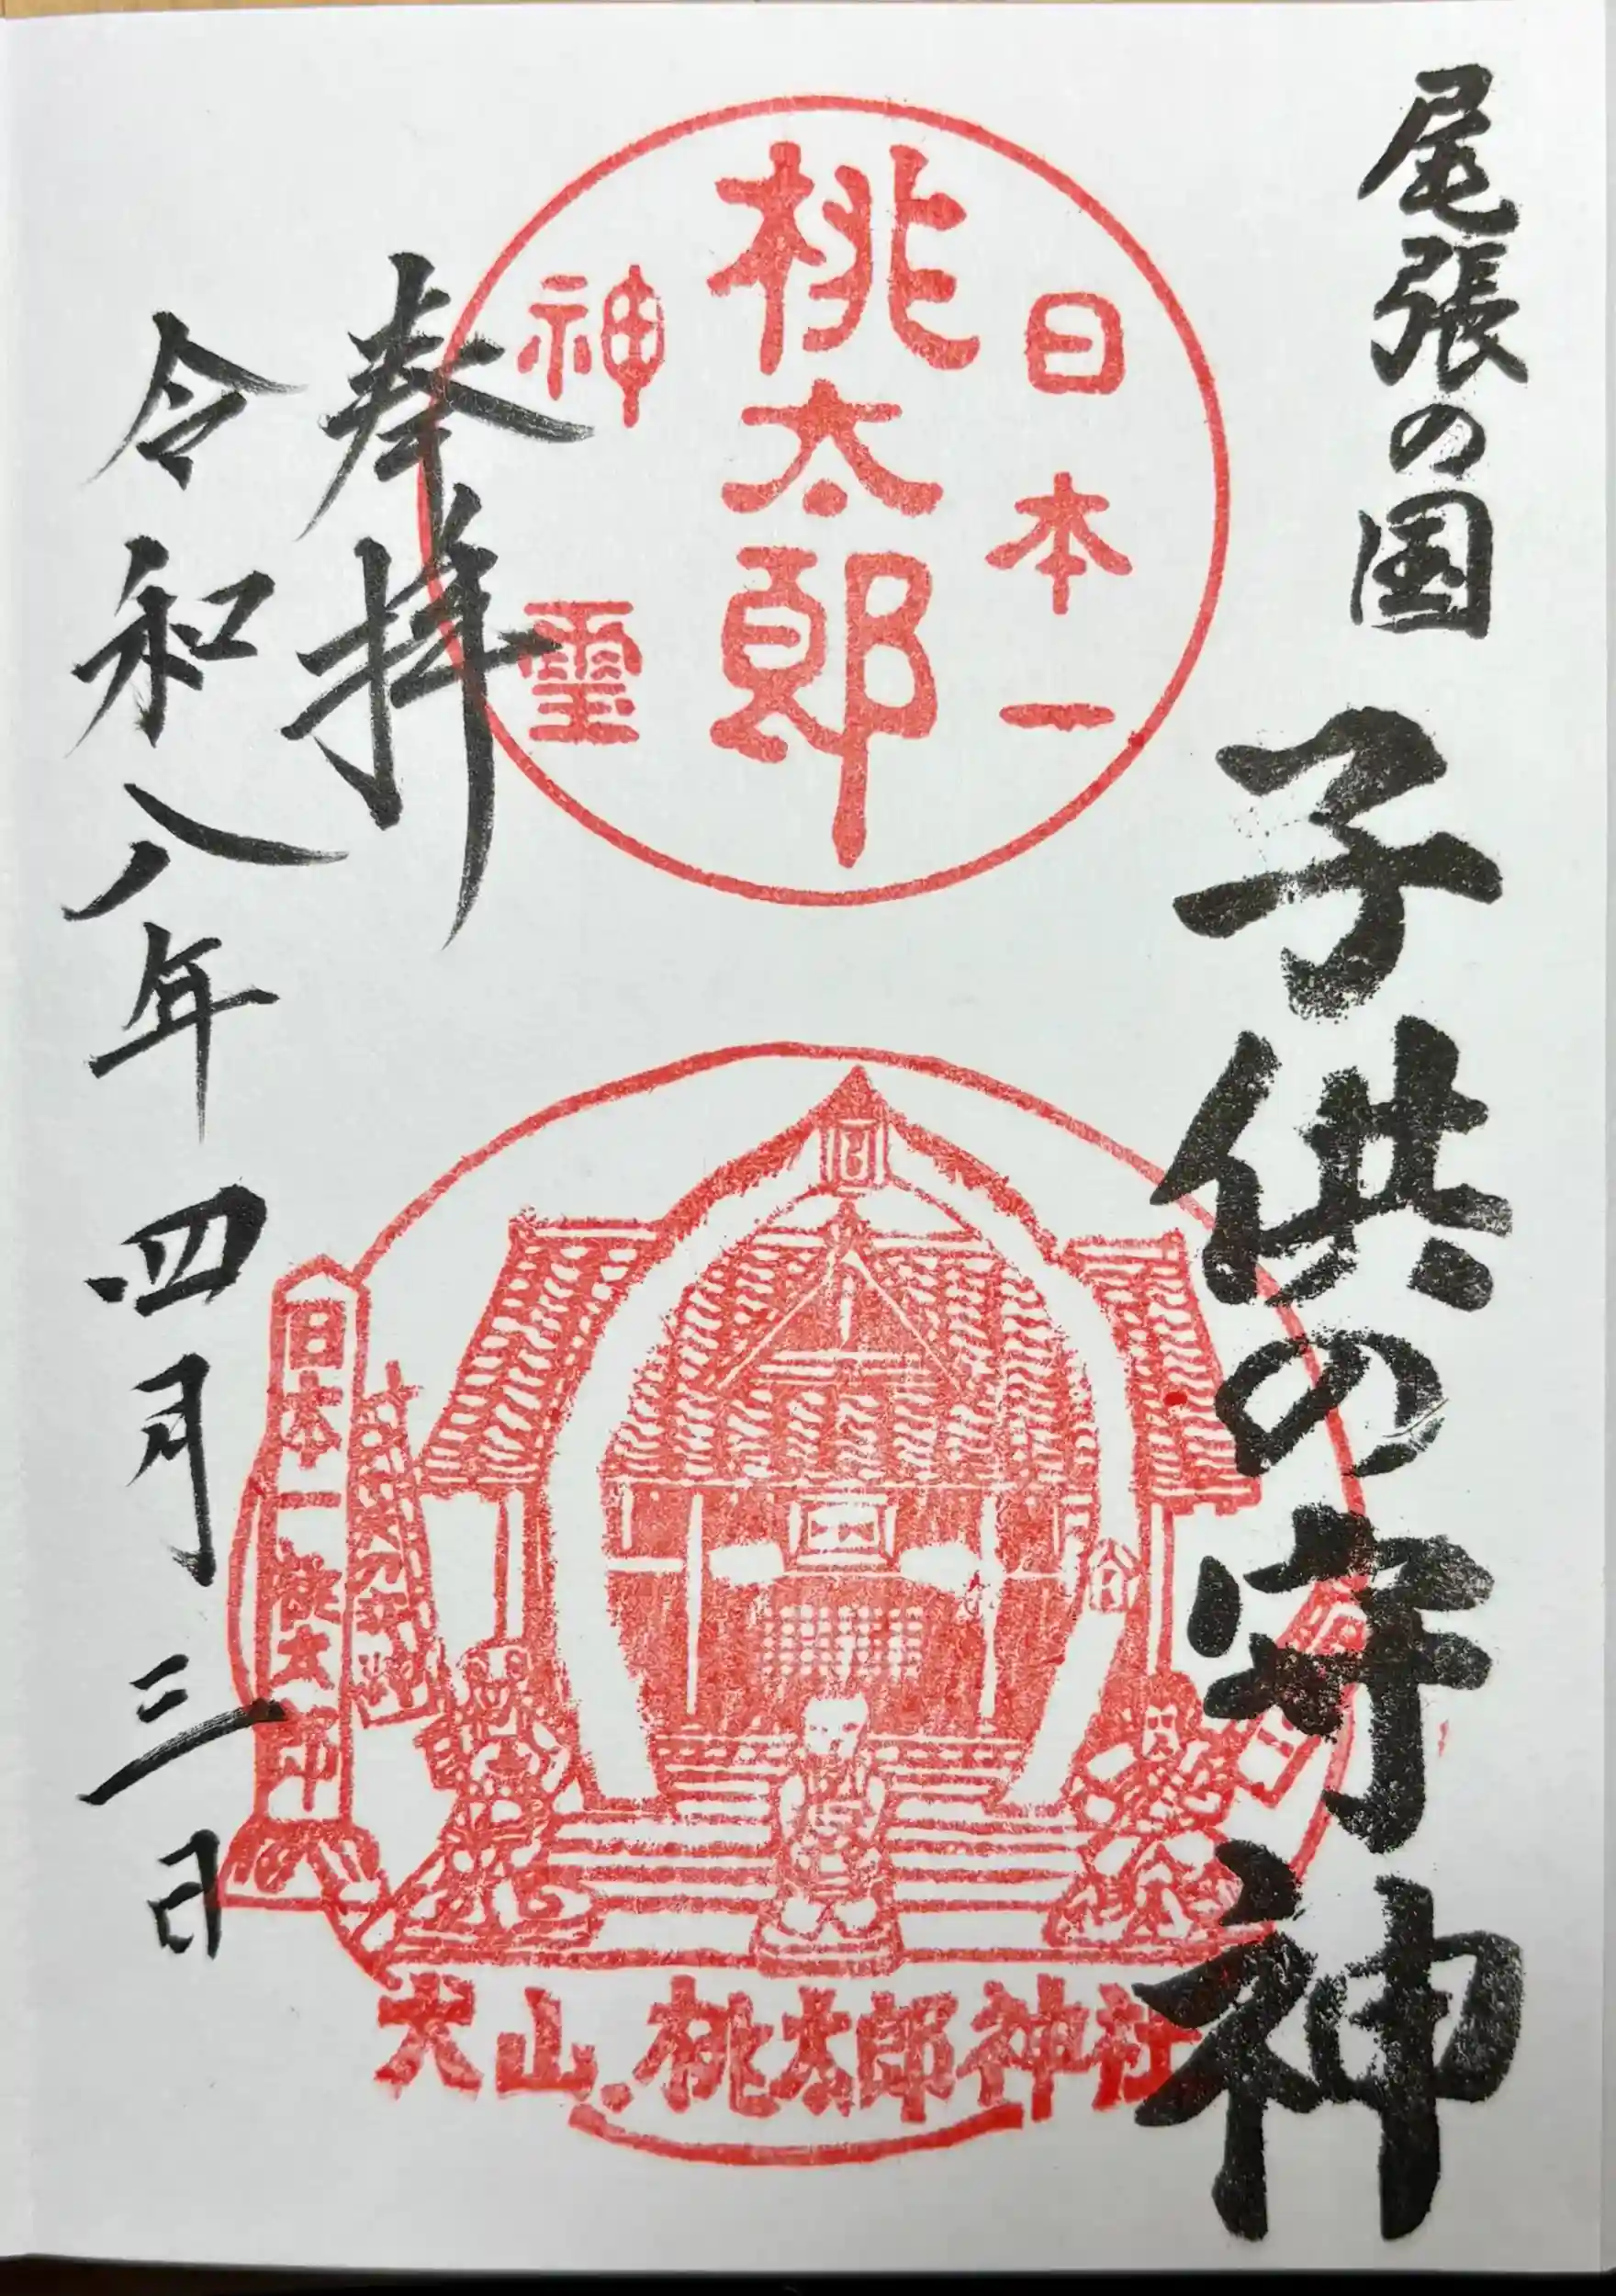 尾張の国
子供の守神
日本一
桃太郎
神璽
奉拝
令和八年四月三日
日本一桃太郎
犬山.桃太郎神社